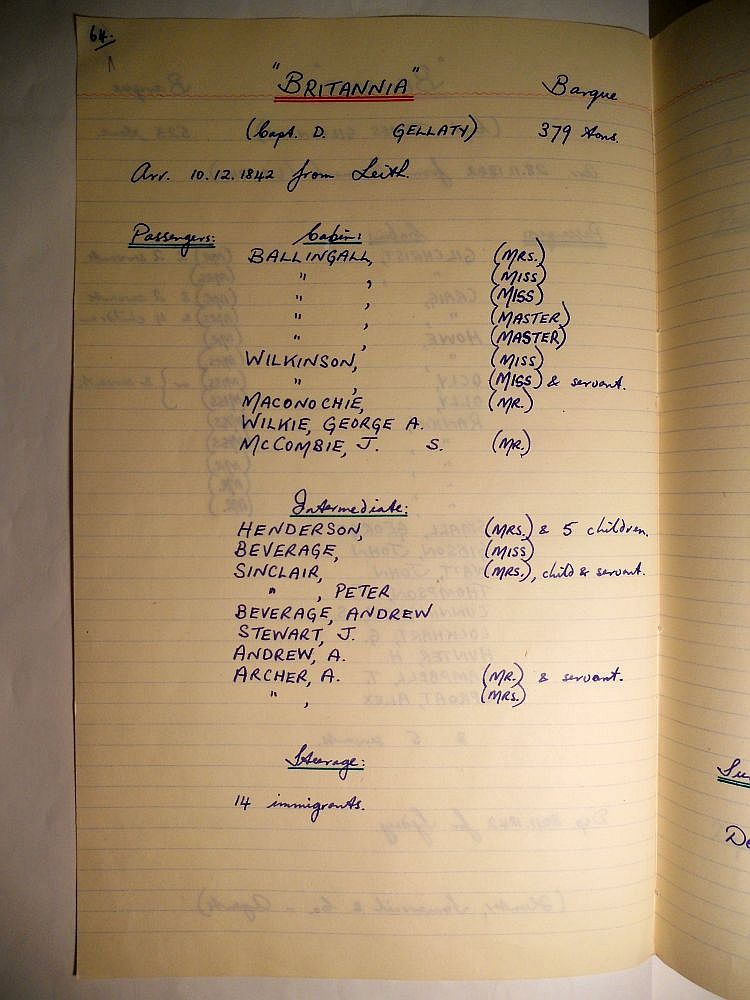 64.
"BRITANNIA" Barque
(Capt. D. GELLATY) 379 tons.
Arr. 10.12.1842 from Leith.
Passengers: Cabin:
BALLINGALL, (MRS.)
" , (MISS)
" , (MISS)
" , (MASTER)
" , (MASTER)
WILKINSON, (MISS)
" , (MISS) & servant.
MACONOCHIE, (MR.)
WILKIE, GEORGE A.
McCOMBIE, J. S. (MR.)
Intermediate:
HENDERSON, (MRS.) & 5 children.
BEVERAGE, (MISS)
SINCLAIR, (MRS.), child & servant.
" , PETER
BEVERAGE, ANDREW
STEWART, J.
ANDREW, A.
ARCHER, A. (MR.) & servant.
" , (MRS.)
Steerage:
14 immigrants.